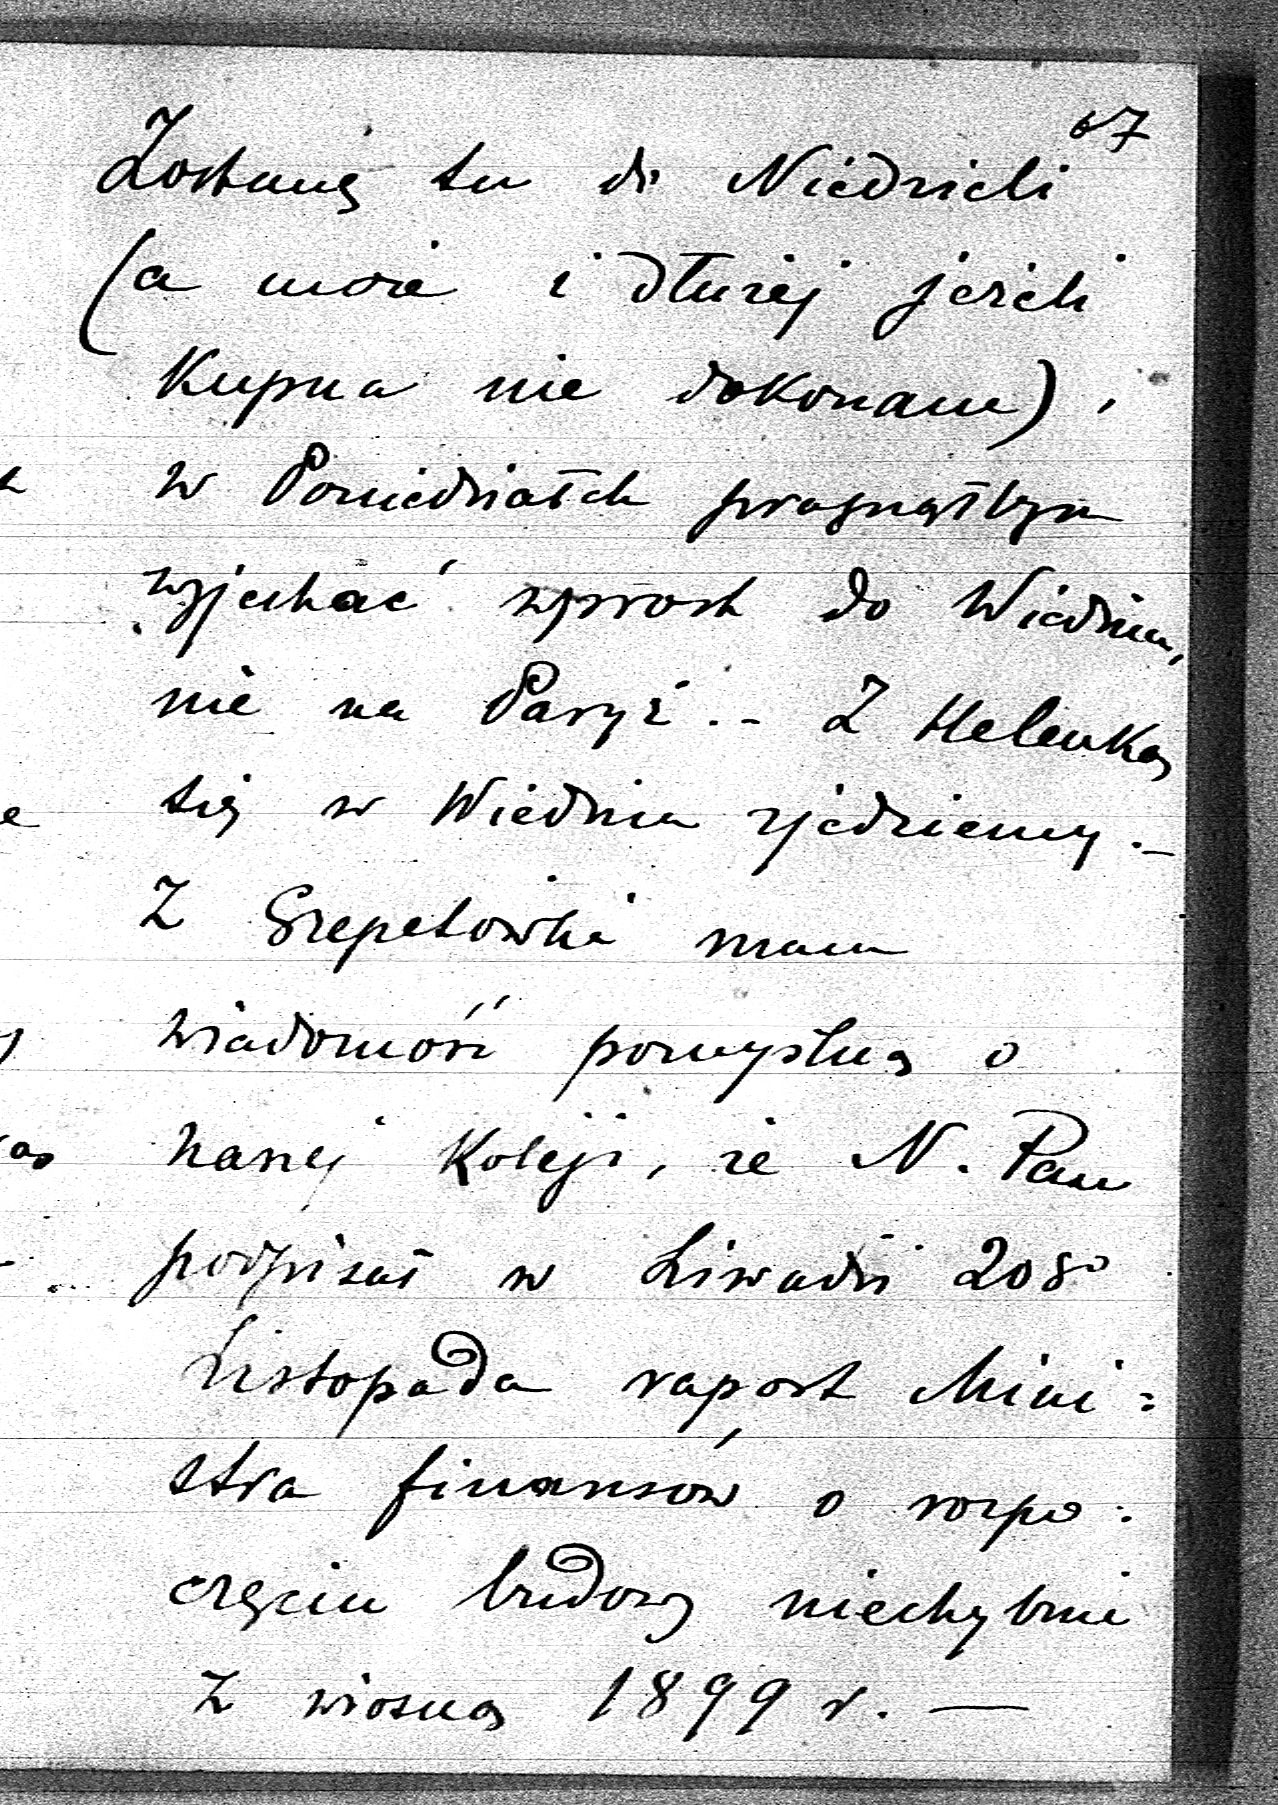 67
Zostanę tu do Niedzieli
(a może i dłużej jeżeli
Kupna nie dokonam),
w Poniedziałek pragnąłbym
wyjechać wprost do Wiednia,
nie na Paryż. - Z Helenką
się w Wiedniu zjedziemy. -
Z Szepetówki mam
wiadomość pomyślną o
naszej Koleji, że N. Pan
podpisał w Liwadii 20go
Listopada raport Mini=
stra finansów o rozpo:
częciu budowy niechybnie
z wiosną 1899 r. —